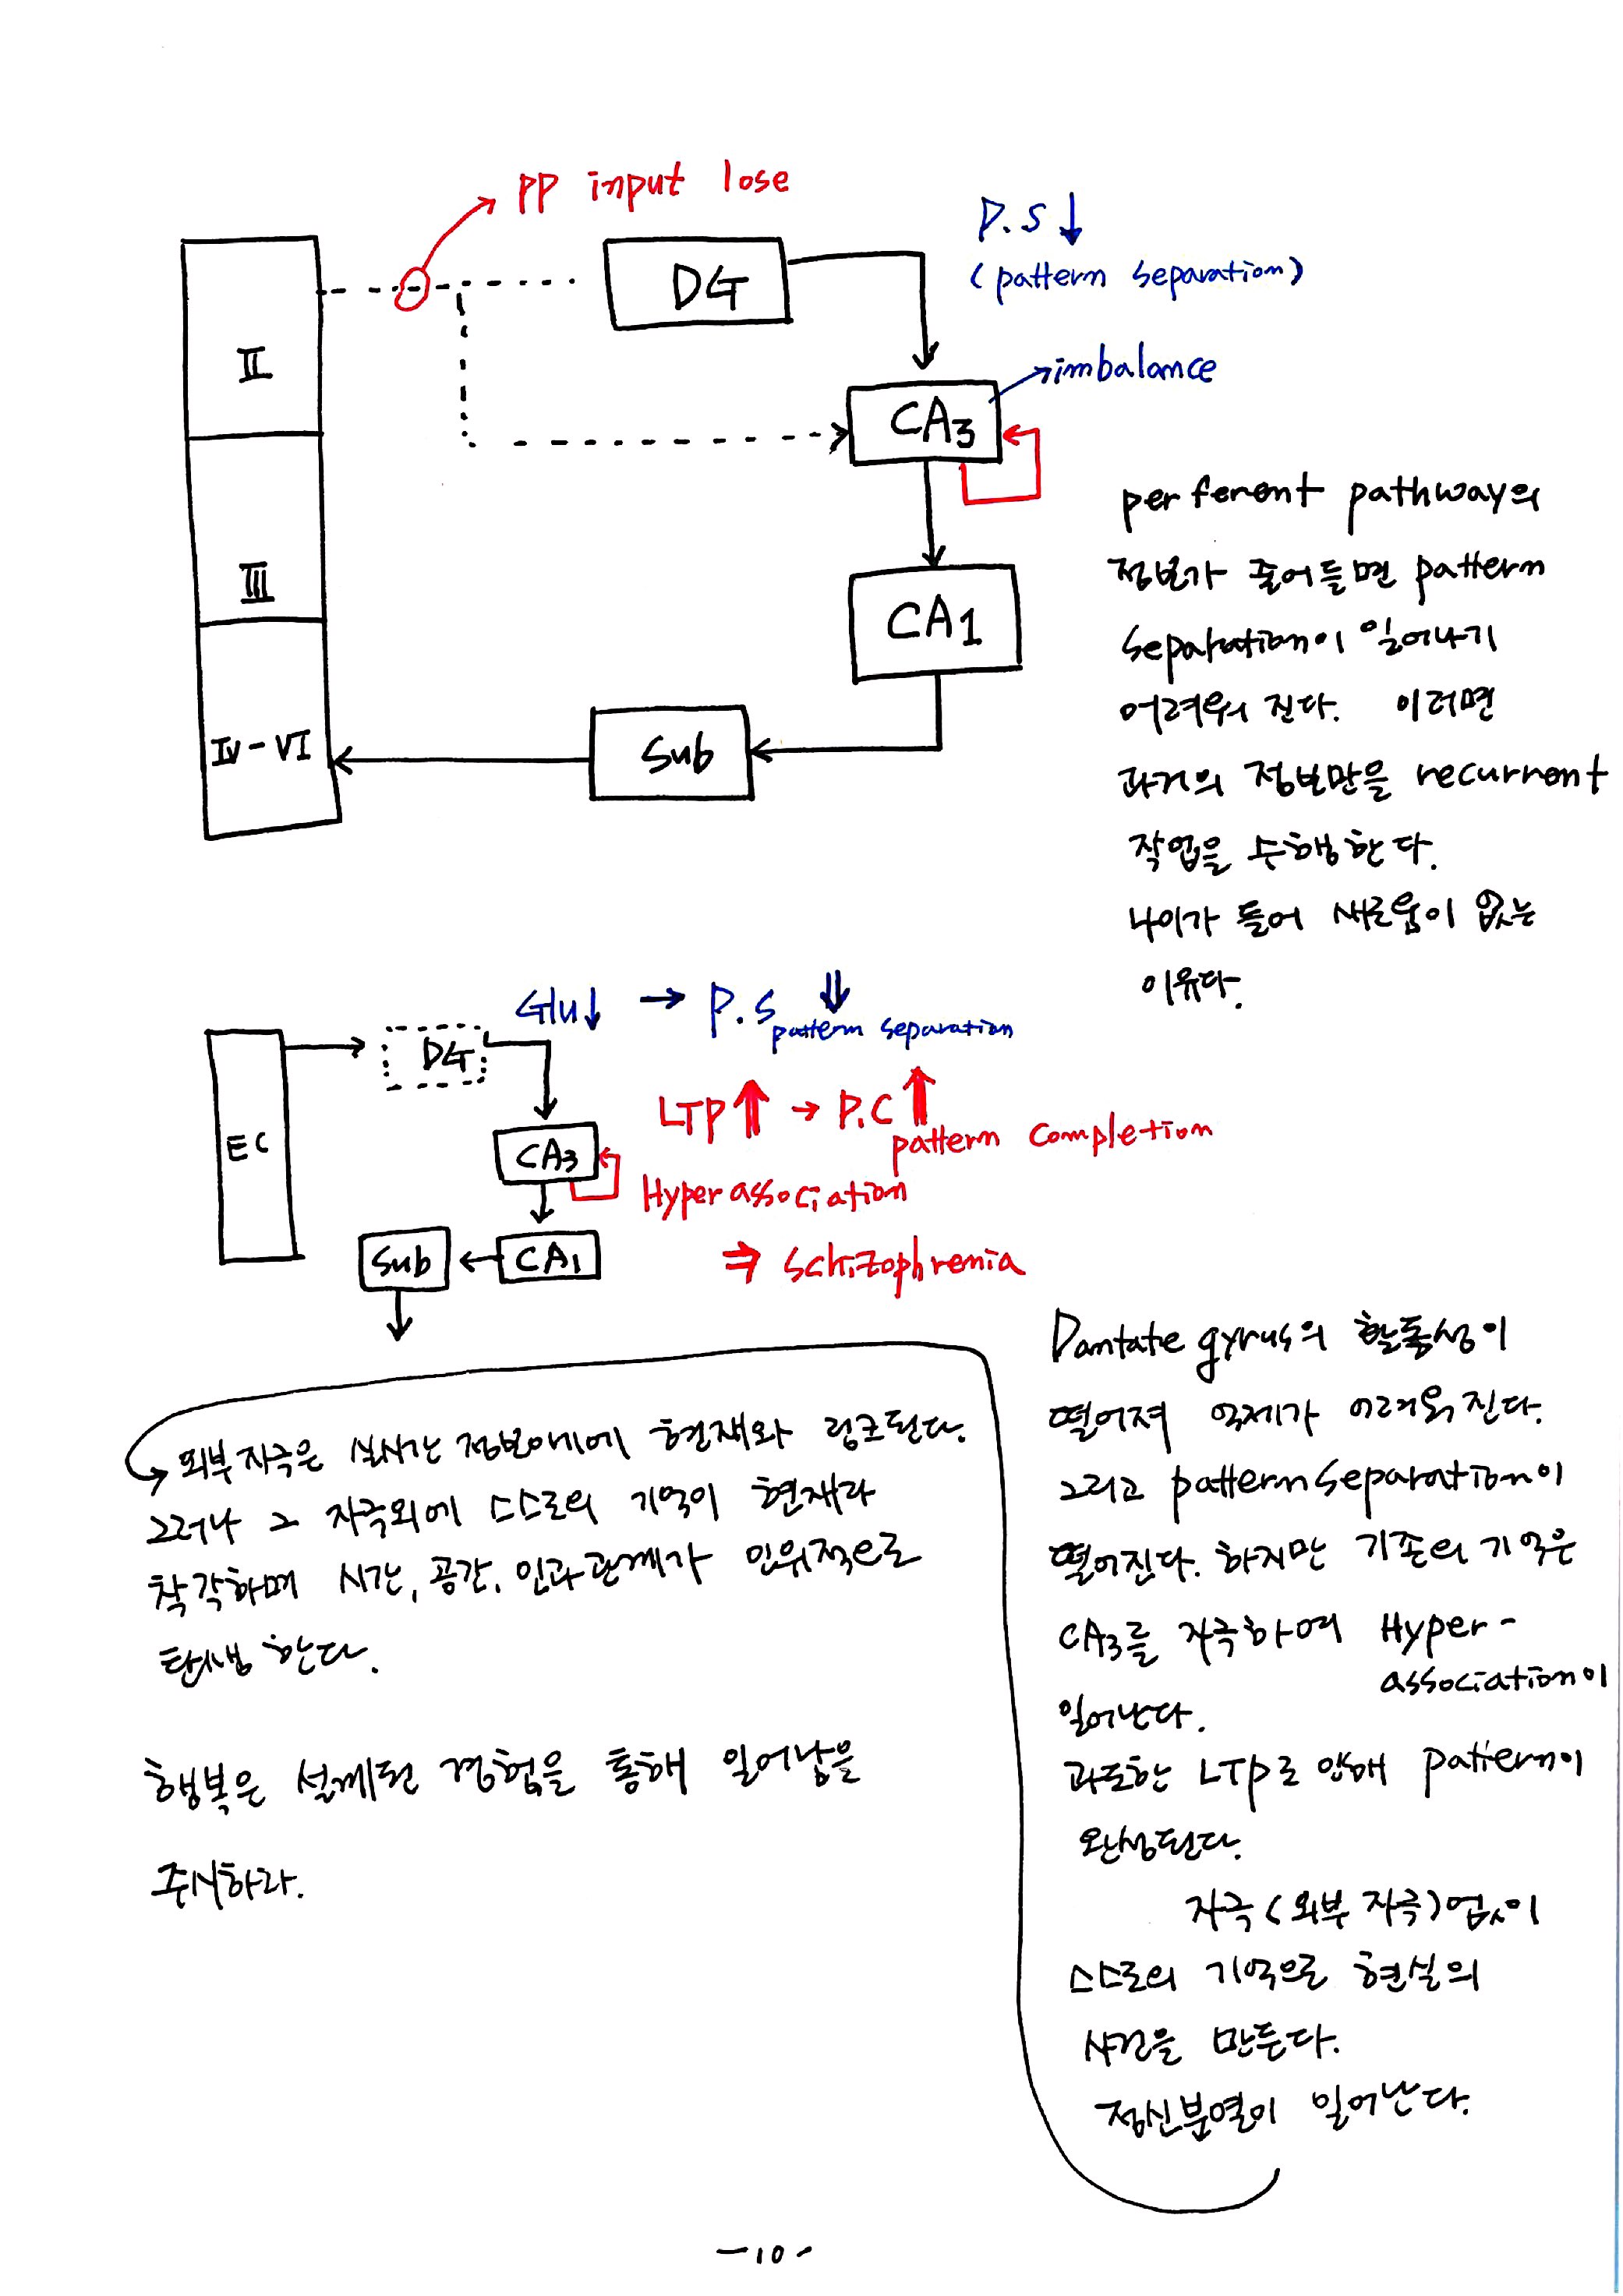 PP input lose
P.S ↓
(pattern separation)
DG
II
imbalance
CA3
III
CA1
IV-VI
Sub
perferent pathway의
정보가 줄어들면 pattern
separation이 일어나기
어려워 진다. 이러면
과거의 정보만을 recurrent
작업을 수행한다.
나이가 들어 새로움이 없는
이유다.
Glu↓ → P.S ⇓
pattern separation
DG
EC
LTP ⇑ → P.C ↑
pattern completion
CA3
Hyper association
Sub
CA1
⇒ Schizophrenia
Dantate gyrus의 활동성이
떨어져 억제가 어려워진다.
그리고 pattern separation이
떨어진다. 하지만 기존의 기억은
CA3를 자극하여 Hyper-
association이
일어난다.
과도한 LTP로 인해 pattern이
완성된다.
자극(외부 자극)없이
스스로의 기억으로 현실의
사건을 만든다.
정신분열이 일어난다.
외부자극은 실시간 정보에에 현재와 링크된다.
그러나 그 자극외에 스스로의 기억이 현재라
착각하며 시간, 공간, 인과관계가 인위적으로
탄생한다.
행복은 설계된 경험을 통해 일어남을
주시하라.
-10-